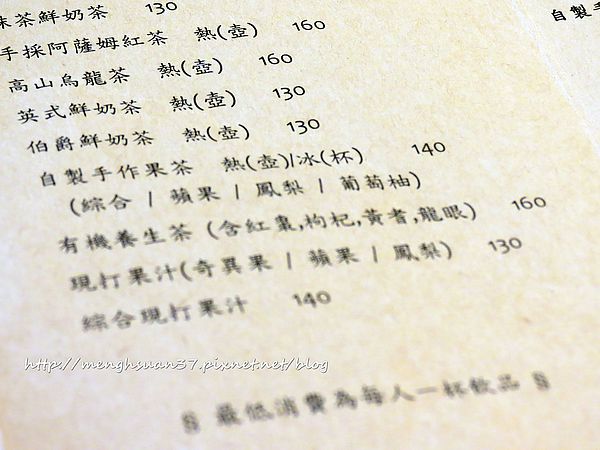 抹茶鮮奶茶 130
手採阿薩姆紅茶 熱(壺) 160
高山烏龍茶 熱(壺) 160
英式鮮奶茶 熱(壺) 130
伯爵鮮奶茶 熱(壺) 130
自製手作果茶 熱(壺)/冰(杯) 140
(綜合 / 蘋果 / 鳳梨 / 葡萄柚)
有機養生茶 (含紅棗,枸杞,黃耆,龍眼) 160
現打果汁(奇異果 / 蘋果 / 鳳梨) 130
綜合現打果汁 140
§ 最低消費為每人一杯飲品 §
自製手
http://menghsuan37.pixnet.net/blog